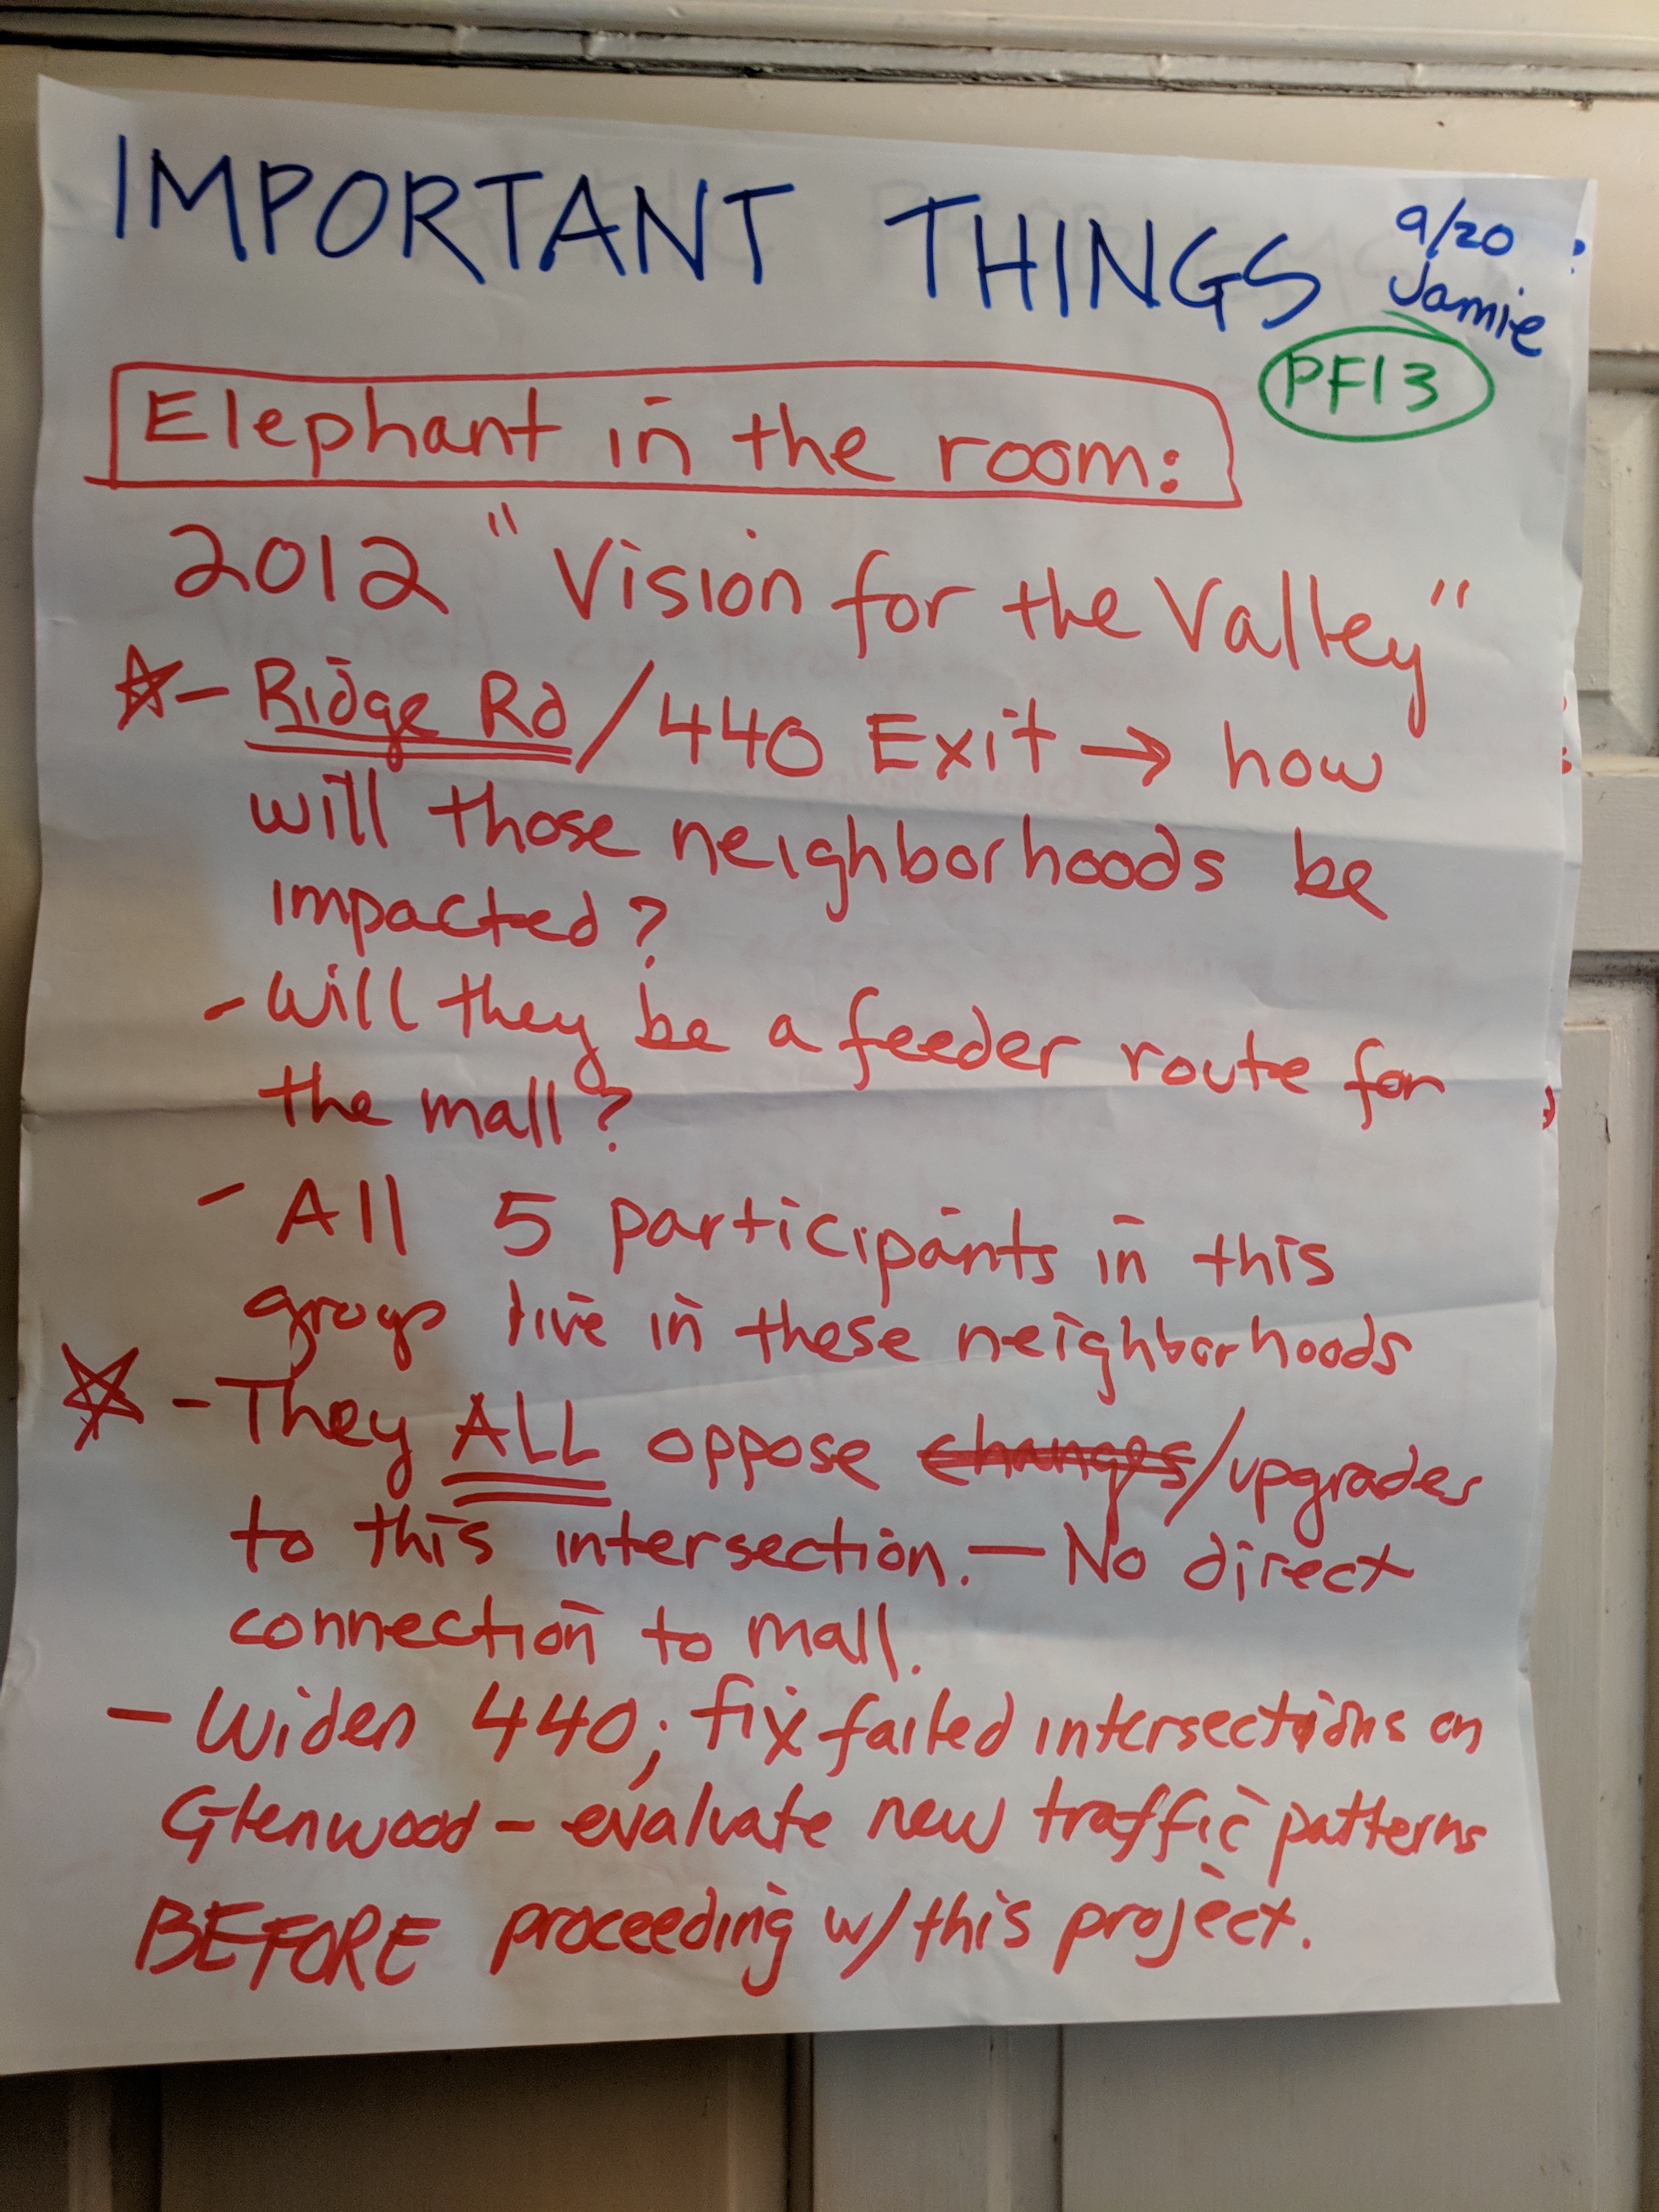 IMPORTANT THINGS
9/20
Jamie
PF13
Elephant in the room:
2012 "Vision for the Valley"
- Ridge Rd/440 Exit → how
will those neighborhoods be
impacted?
- Will they be a feeder route for
the mall?
- All 5 participants in this
group live in these neighborhoods
- They ALL oppose changes/upgrades
to this intersection. — No direct
connection to mall.
- Widen 440; fix failed intersections on
Glenwood - evaluate new traffic patterns
BEFORE proceeding w/this project.